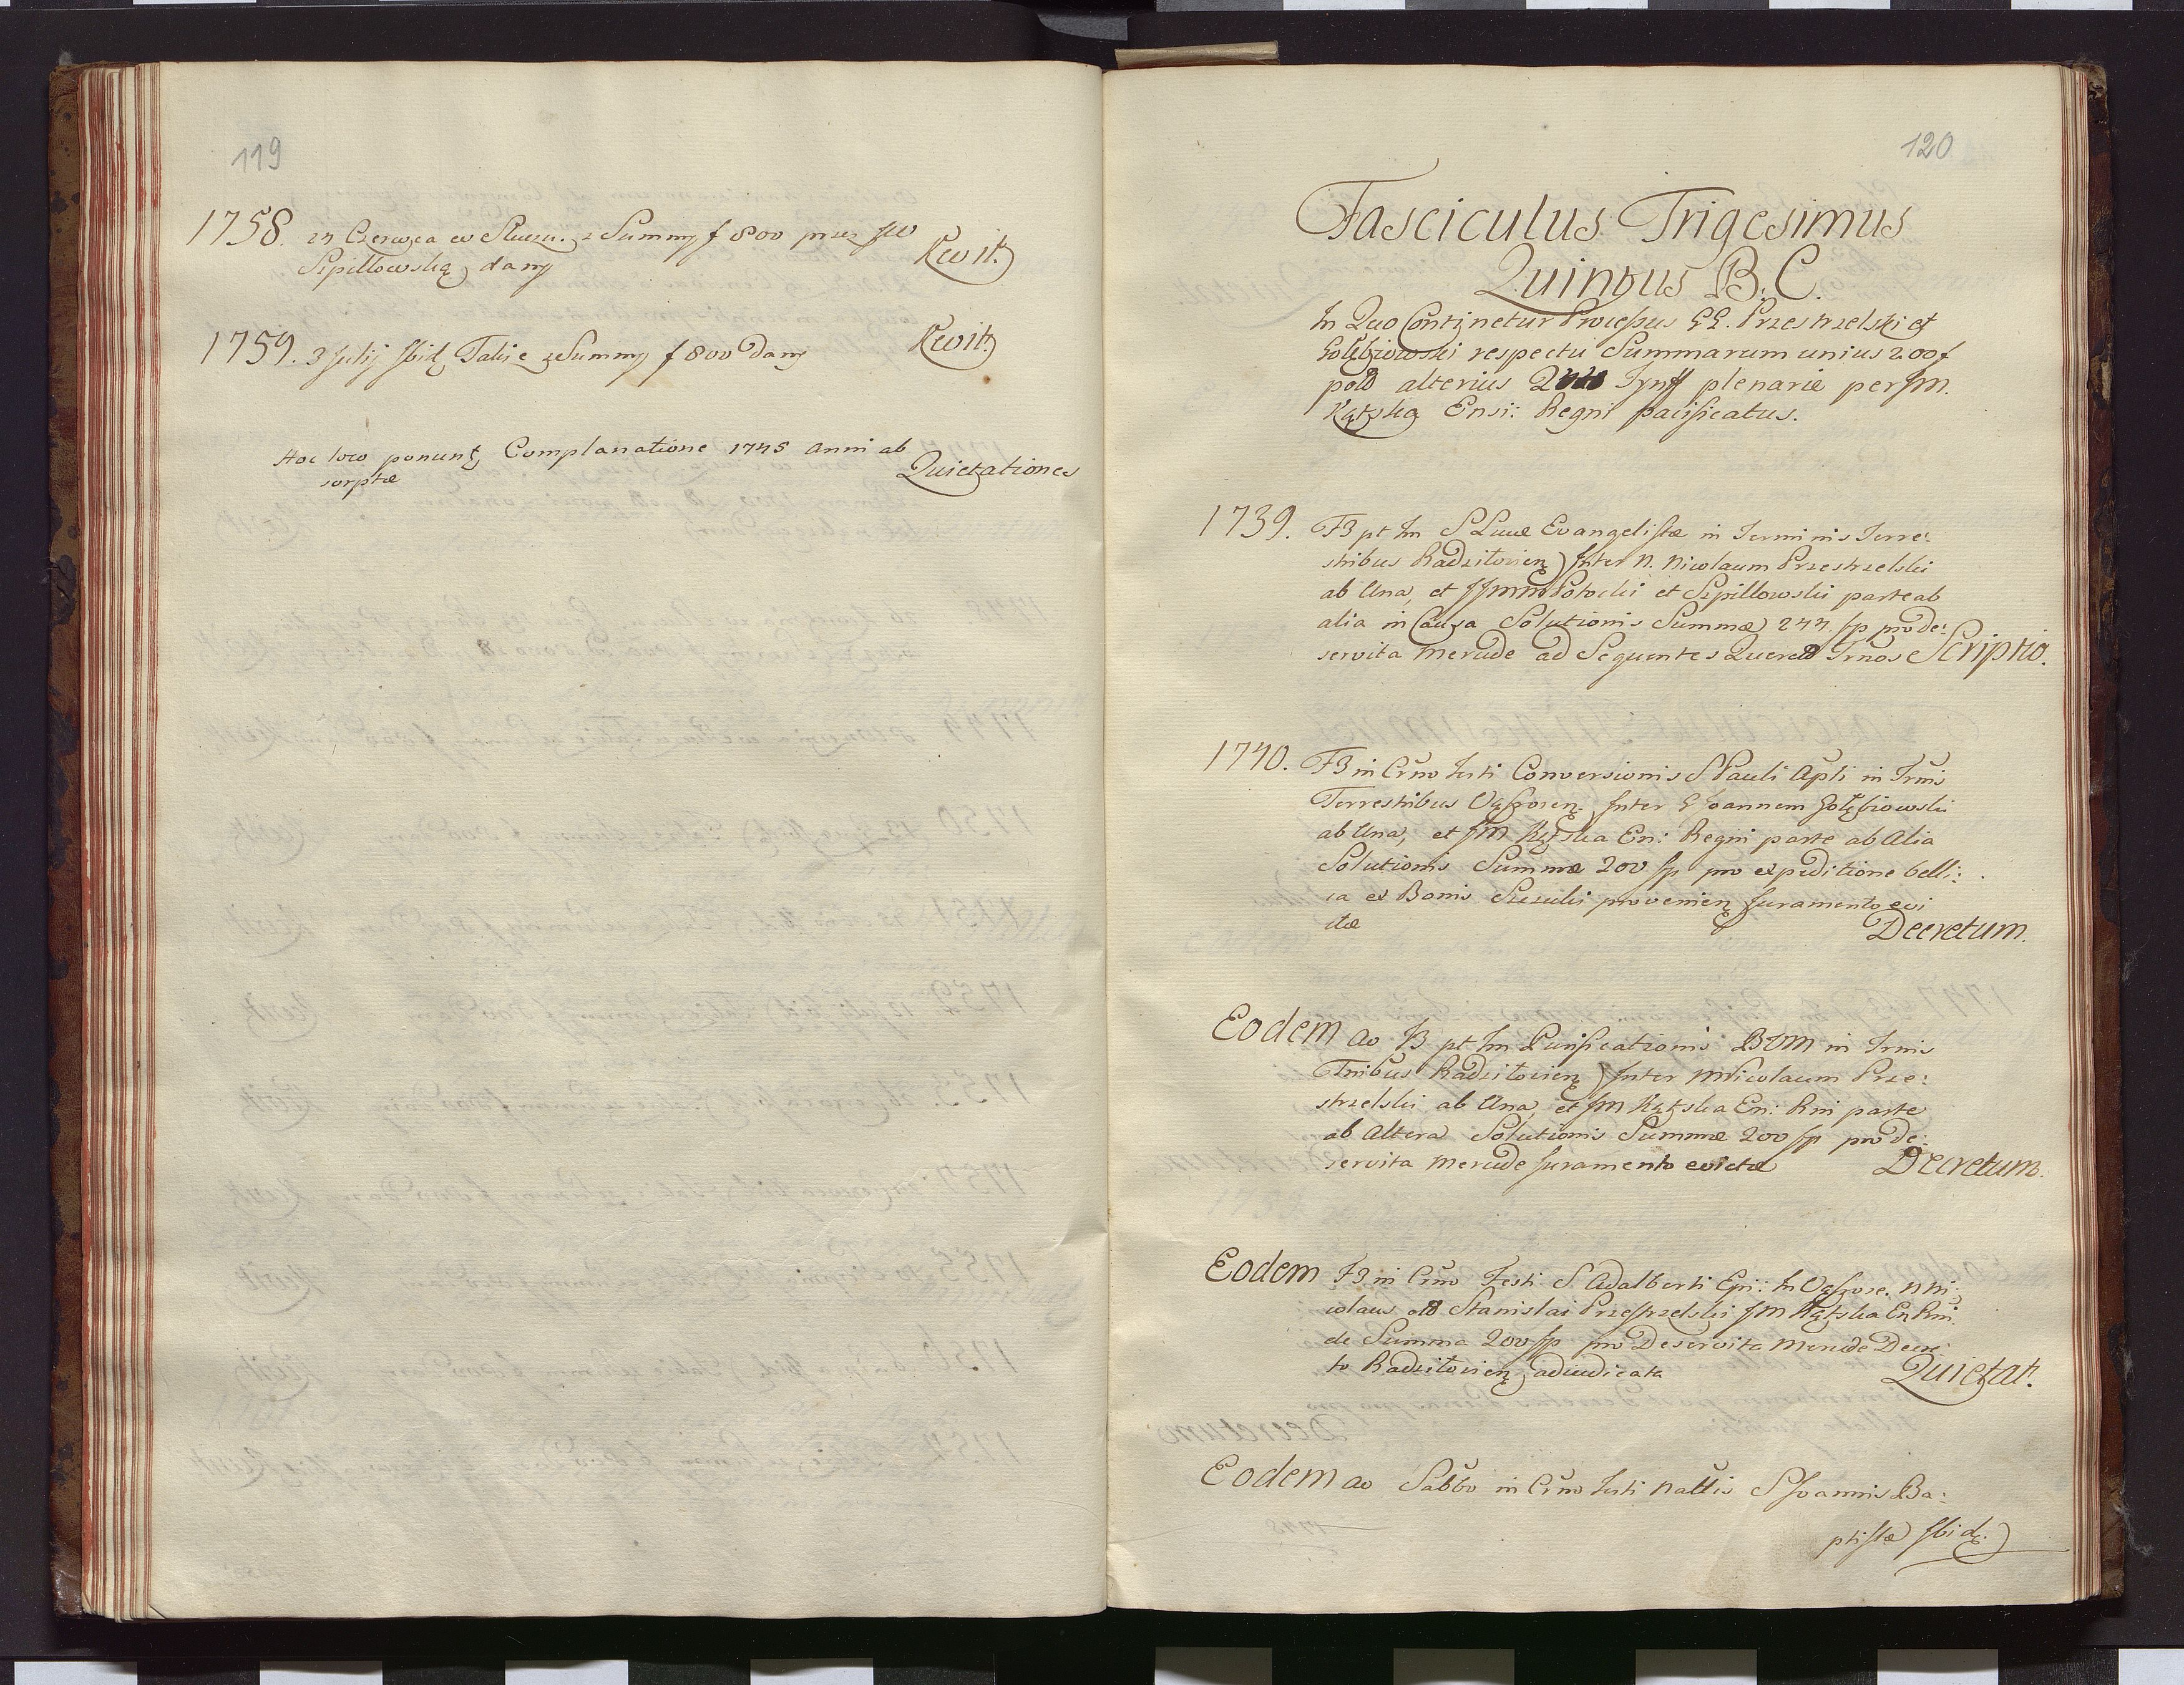 119
1758. 24 Czerwca w Słuzu. z Summy f 800 przez JW
Szpiłłowską dany Kwit.
1759. 3 Julij Ibid. Takie z Summy f 800 dany Kwit.
Hoc loco ponunt. Complanatione 1745 Anni ab
sorptæ Quietationes
120
Fasciculus Trigesimus
Quintus B. C.
In Quo Continetur Processus GG. Przestrzelski et
Gołębiowski respectu Summarum unius 200 f
pold alterius Tynff plenarie per JM.
Kątską Ensi: Regni pacificatus.
1739. F3 pt Im S Lucæ Evangelistæ in Terminis Terre:
stribus Radziłovien. Inter N. Nicolaum Przestrzelski
ab Una, et JJmm Potocki et Szpiłłowski parte ab
alia in Causa Solutionis Summæ 244 fp pro de:
servita Mercede ad Sequentes Querel Trnos Scriptio.
1740. F3 in Crno Festi Conversionis S Pauli Apli in Trnis
Terrestribus Vąsosien. Inter G Joannem Gołębiowski
ab Una, et JM Kątska En: Regni parte ab Alia
Solutionis Summæ 200 fp pro expeditione belli:
ca ex Bonis Szczuki provenien. Juramento evi
ctæ Decretum.
Eodem Ao F3 pt Im Purificationis BVM in Trnis
Trribus Radziłovien. Inter N Nicolaum Prze:
strzelski ab Una, et JM Kątska En: Rni parte
ab Altera Solutionis Summæ 200 fp pro de:
servita Mercede Juramento evictæ Decretum.
Eodem F3 in Crno Festi S. Adalberti Epi: In Vąsose. N Ni:
colaus old Stanislai Przestrzelski JM Kątska En Rni.
de Summa 200 fp pro Deservita Mercede Decre:
to Radziłovien. adiudicata Quietat.
Eodem Ao Sabbo in Crno Festi Nattis S Joannis Ba:
ptistæ Ibid.